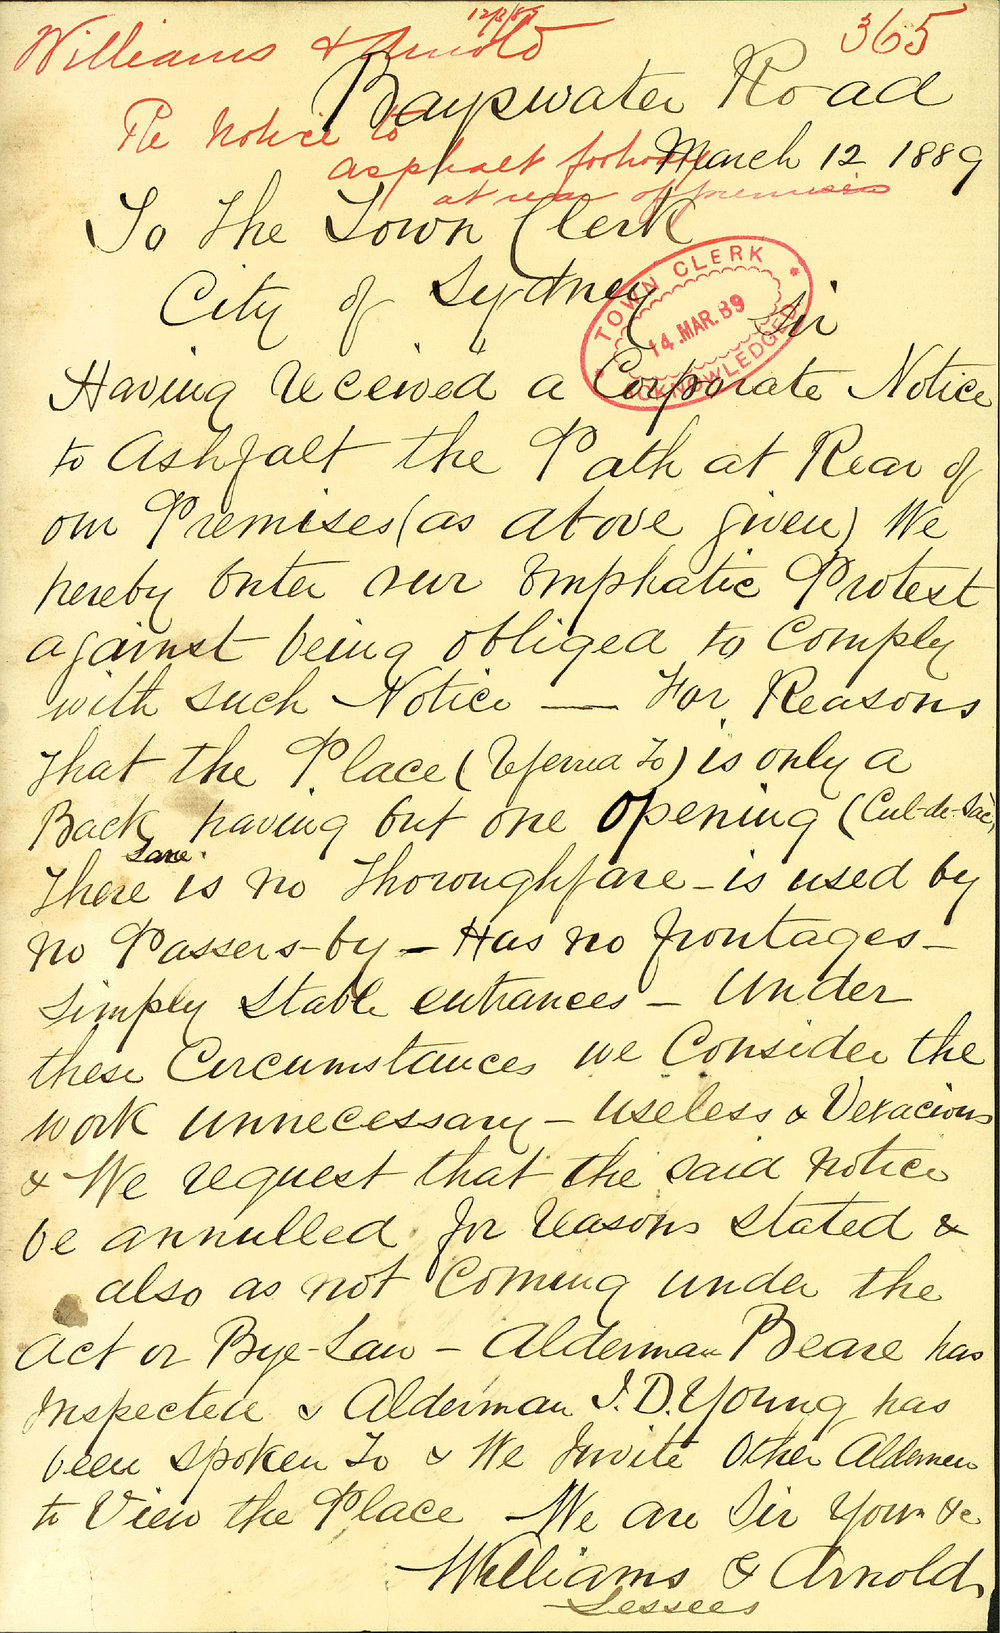 12/3/89
Williams & Arnold 365
Bayswater Road
Re Notice to
asphalt footway March 12 1889
at rear of premises
To The Town Clerk
City of Sydney
TOWN CLERK
14.MAR.89
ACKNOWLEDGED
Sir
Having received a Corporate Notice
to Ashfalt the Path at Rear of
our Premises (as above given) We
hereby Enter our Emphatic Protest
against being obliged to Comply
with such Notice — For Reasons
That the Place (referred To) is only a
Back Lane having but one Opening (Cul-de-Sac)
There is no Thoroughfare - is used by
no Passers-by - Has no frontages -
Simply Stable entrances - Under
these Circumstances we Consider the
work unnecessary - useless & Vexacious
& We request that the said Notice
be annulled for reasons stated &
also as not Coming under the
Act or Bye-Law - Alderman Beare has
Inspected & Alderman J.D. Young has
been spoken To & We Invite Other Aldermen
to View the Place We are Sir Yours &c
Williams & Arnold
Lessees